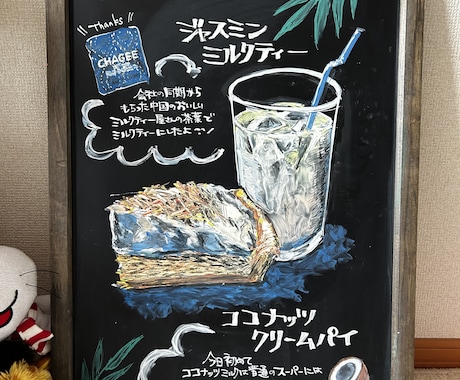 Thanks
CHAGEE
ジャスミン
ミルクティー
会社の同期から
もらった中国のおいしい
ミルクティー屋さんの茶葉で
ミルクティーにしたよ〜ン
ココナッツ
クリームパイ
今日初めて
ココナッツミルクは普通のスーパーには